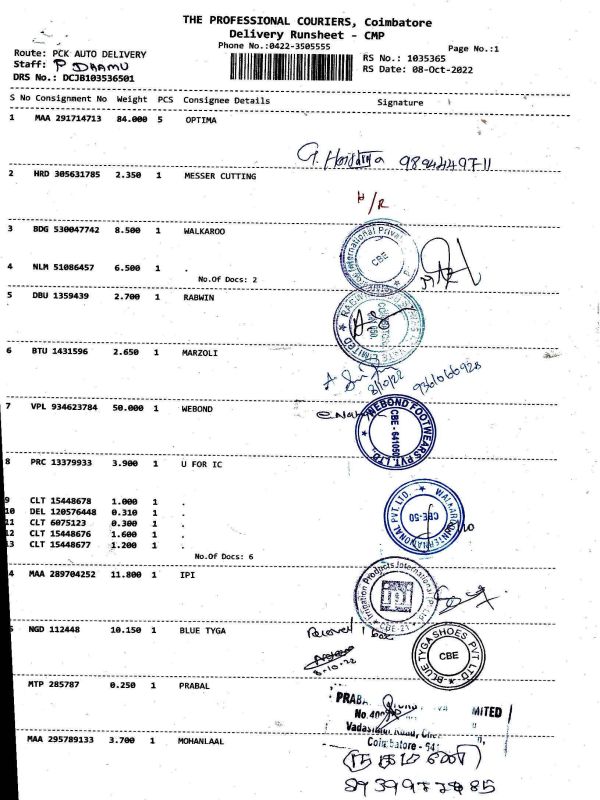 THE PROFESSIONAL COURIERS, Coimbatore
Delivery Runsheet - CMP
Phone No.:0422-3505555
Page No.:1
Route: PCK AUTO DELIVERY
Staff: P DHAMU
DRS No.: DCJB103536501
RS No.: 1035365
RS Date: 08-Oct-2022
S No Consignment No Weight PCS Consignee Details Signature
1 MAA 291714713 84.000 5 OPTIMA
9894449711
2 HRD 305631785 2.350 1 MESSER CUTTING
H/R
3 BDG 530047742 8.500 1 WALKAROO
CBE
4 NLM 51086457 6.500 1 .
No.Of Docs: 2
5 DBU 1359439 2.700 1 RABWIN
6 BTU 1431596 2.650 1 MARZOLI
8/10/22
7 VPL 934623784 50.000 1 WEBOND
WEBOND FOOTWEARS PVT. LTD.
CBE - 641050
8 PRC 13379933 3.900 1 U FOR IC
9 CLT 15448678 1.000 1 .
10 DEL 120576448 0.310 1 .
11 CLT 6075123 0.300 1 .
12 CLT 15448676 1.600 1 .
13 CLT 15448677 1.200 1 .
No.Of Docs: 6
WALKAROO INTERNATIONAL PVT. LTD.
CBE-50
4 MAA 289704252 11.800 1 IPI
Irrigation Products International (P) Ltd
CBE-21
NGD 112448 10.150 1 BLUE TYGA
Received 1 box
8-10-22
BLUE TYGA SHOES PVT LTD
CBE
MTP 285787 0.250 1 PRABAL
PRABA
MITED
MAA 295789133 3.700 1 MOHANLAAL